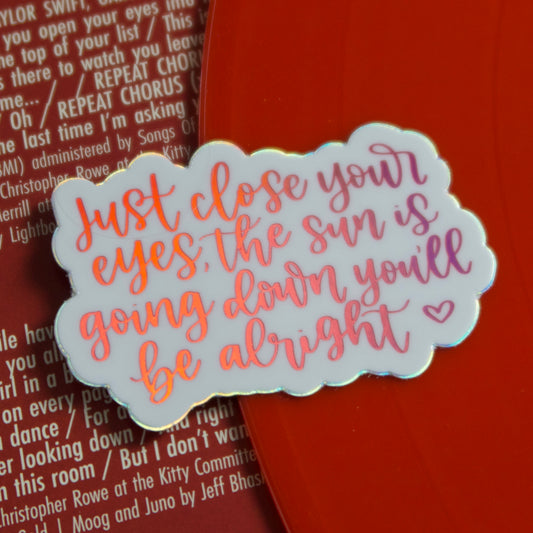 AYLOR SWIFT,
you open your eyes into
he top of your list / This is
s there to watch you leave
me... / / REPEAT CHORUS
/ Oh / REPEAT CHORUS
he last time I'm asking
BMI) administered by Songs Of
Christopher Rowe at the Kitty
Merrill at
y Lightbo
Just close your
eyes, the sun is
going down you'll
be alright
hile have
you all
irl in a b
on every pag
dance / For a
er looking down / And right
n this room / But I don't wan
Christopher Rowe at the Kitty Committe
J Moog and Juno by Jeff Bhask